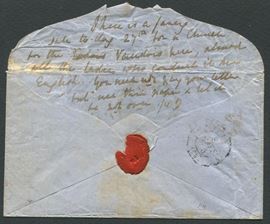 There is a fancy
sale to day 29th for a Church
for the Vaudois here, almost
all the ladies who conduct it are
English. You need not pay your letter
but use thin paper & let it
be not over